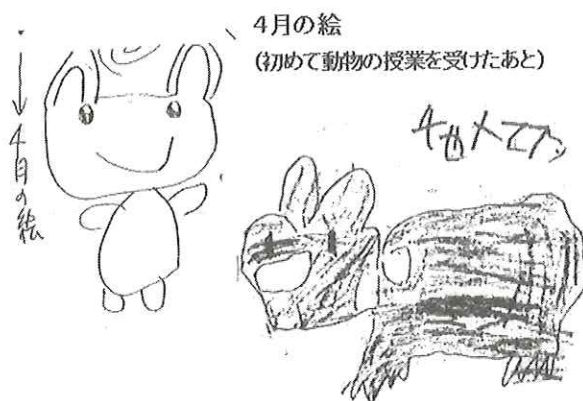 4月の絵
(初めて動物の授業を受けたあと)
4月の絵